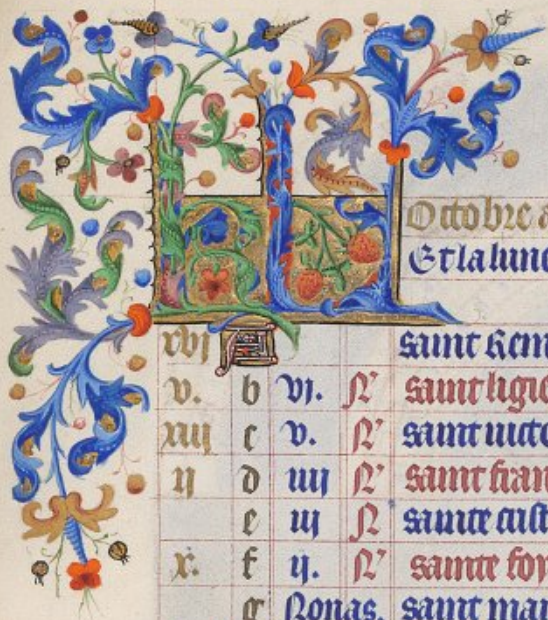 KL
Octobre a
Et la lune
xvj A saint Rem
v. b vj. N saint ligie
xiij c v. N saint uict
ij d iiij N saint fran
e iij N sainte
x. f ij. N sainte foy
g Nonas. saint mar